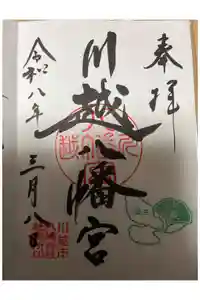 奉拝
川越八幡宮
令和八年
三月八日